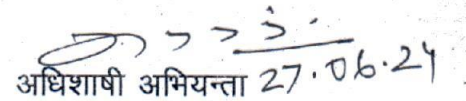 अधिशाषी अभियन्ता 27.06.24